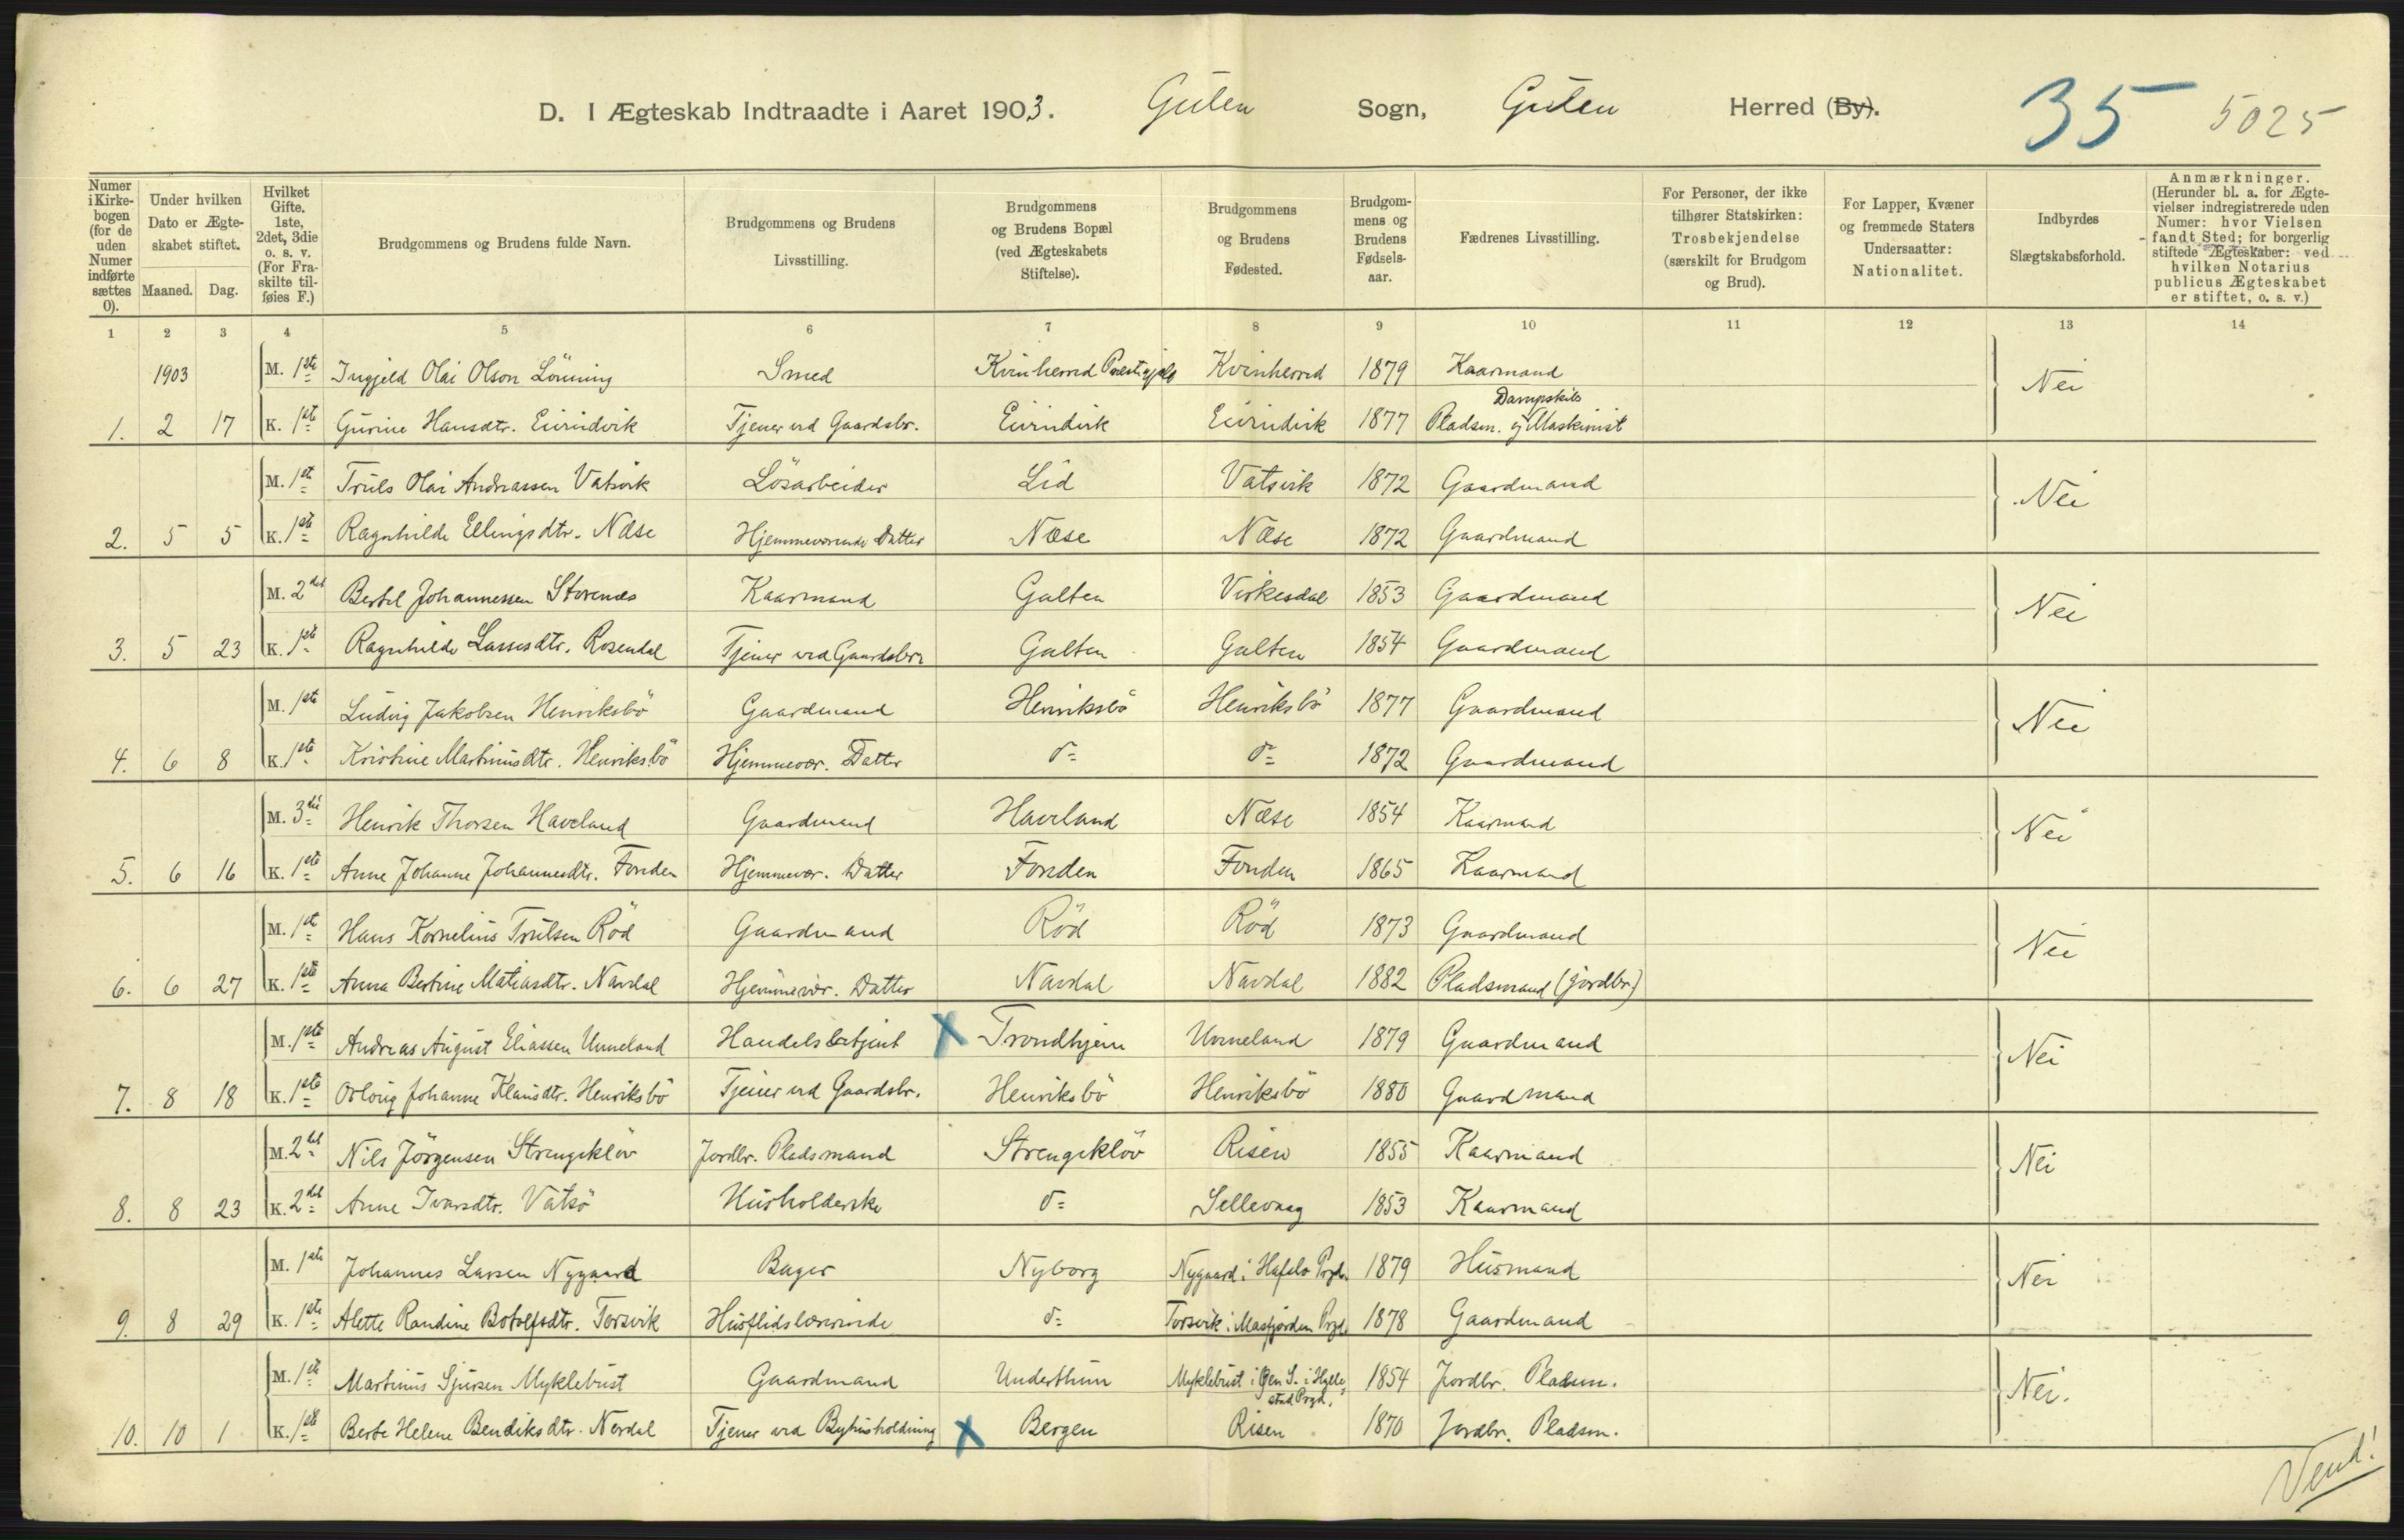 D. I Ægteskab Indtraadte i Aaret 1903. Gulen Sogn, Gulen Herred (By). 35 5025
Numer i Kirkebogen (for de uden Numer indførte sættes 0). Under hvilken Dato er Ægteskabet stiftet. Maaned. Dag. Hvilket Gifte. 1ste, 2det, 3die o. s. v. (For Fraskilte tilføies F.) Brudgommens og Brudens fulde Navn. Brudgommens og Brudens Livsstilling. Brudgommens og Brudens Bopæl (ved Ægteskabets Stiftelse). Brudgommens og Brudens Fødested. Brudgommens og Brudens Fødselsaar. Fædrenes Livsstilling. For Personer, der ikke tilhører Statskirken: Trosbekjendelse (særskilt for Brudgom og Brud). For Lapper, Kvæner og fremmede Staters Undersaatter: Nationalitet. Indbyrdes Slægtskabsforhold. Anmærkninger. (Herunder bl. a. for Ægtevielser indregistrerede uden Numer: hvor Vielsen fandt Sted; for borgerlig stiftede Ægteskaber: ved hvilken Notarius publicus Ægteskabet er stiftet, o. s. v.)
1 2 3 4 5 6 7 8 9 10 11 12 13 14
1903 M. 1ste Ingjeld Olai Olson Lönning Smed Kvinherred Præstegjeld Kvinherred 1879 Kaarmand Nei
1. 2 17 K. 1ste Gurine Hansdtr. Eivindvik Tjener ved Gaardsbr. Eivindvik Eivindvik 1877 Pladsm. og Dampskibs Maskinist
M. 1ste Truls Olai Andreassen Vatsvik Lösarbeider Lid Vatsvik 1872 Gaardmand Nei
2. 5 5 K. 1ste Ragnhilde Ellingsdtr. Næse Hjemmeværende Datter Næse Næse 1872 Gaardmand
M. 2det Bertel Johannessen Storenæs Kaarmand Galten Virkesdal 1853 Gaardmand Nei
3. 5 23 K. 1ste Ragnhilde Lassesdtr. Rosendal Tjener ved Gaardsbr. Galten Galten 1854 Gaardmand
M. 1ste Ludvig Jakobsen Henriksbö Gaardmand Henriksbö Henriksbö 1877 Gaardmand Nei
4. 6 8 K. 1ste Kristine Martinusdtr. Henriksbö Hjemmevær. Datter do do 1872 Gaardmand
M. 3die Henrik Thorsen Haveland Gaardmand Haveland Næse 1854 Kaarmand Nei
5. 6 16 K. 1ste Anne Johanne Johannesdtr. Fonden Hjemmevær. Datter Fonden Fonden 1865 Kaarmand
M. 1ste Hans Kornelius Trulsen Röd Gaardmand Röd Röd 1873 Gaardmand Nei
6. 6 27 K. 1ste Anna Bertine Matiasdtr. Navdal Hjemmevær. Datter Navdal Navdal 1882 Pladsmand (jordbr.)
M. 1ste Andreas August Eliassen Unneland Handelsbetjent X Trondhjem Unneland 1879 Gaardmand Nei
7. 8 18 K. 1ste Ovloug Johanne Klausdtr. Henriksbö Tjener ved Gaardsbr. Henriksbö Henriksbö 1880 Gaardmand
M. 2det Nils Jörgensen Strengeklöv Jordbr. Pladsmand Strengeklöv Risen 1855 Kaarmand Nei
8. 8 23 K. 2det Anne Ivarsdtr. Vatsö Husholderske do Sellevaag 1853 Kaarmand
M. 1ste Johannes Larsen Nygaard Bager Nyborg Nygaard i Hafslo Prgd. 1879 Husmand Nei
9. 8 29 K. 1ste Alette Randine Botolfsdtr. Torsvik Husflidslærerinde do Torsvik i Masfjorden Prgd. 1878 Gaardmand
M. 1ste Martinus Sjursen Myklebust Gaardmand Underthun Myklebust i Øen S. i Hyllestad Prgd. 1854 Jordbr. Pladsm. Nei.
10. 10 1 K. 1ste Berte Helene Bendiksdtr. Nordal Tjener ved Byhusholdning X Bergen Risen 1870 Jordbr. Pladsm.
Vend!